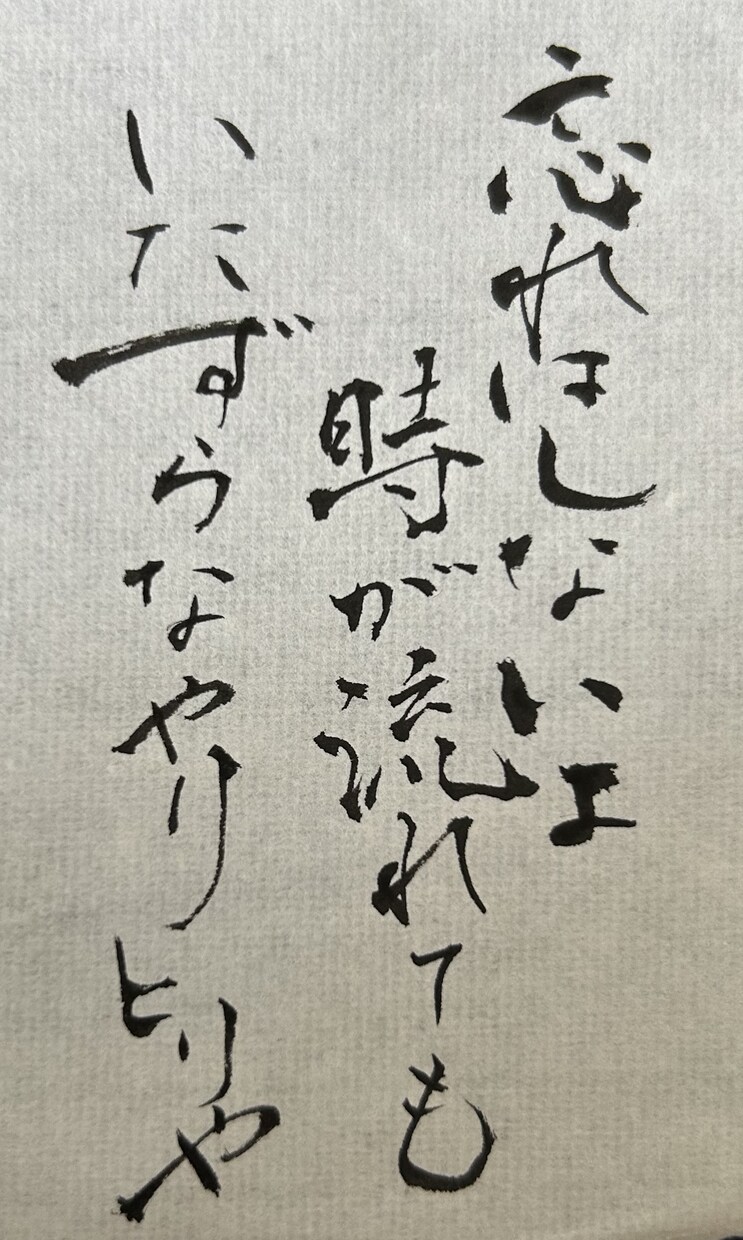 忘れはしないよ
時が流れても
いたずらなやりとりや